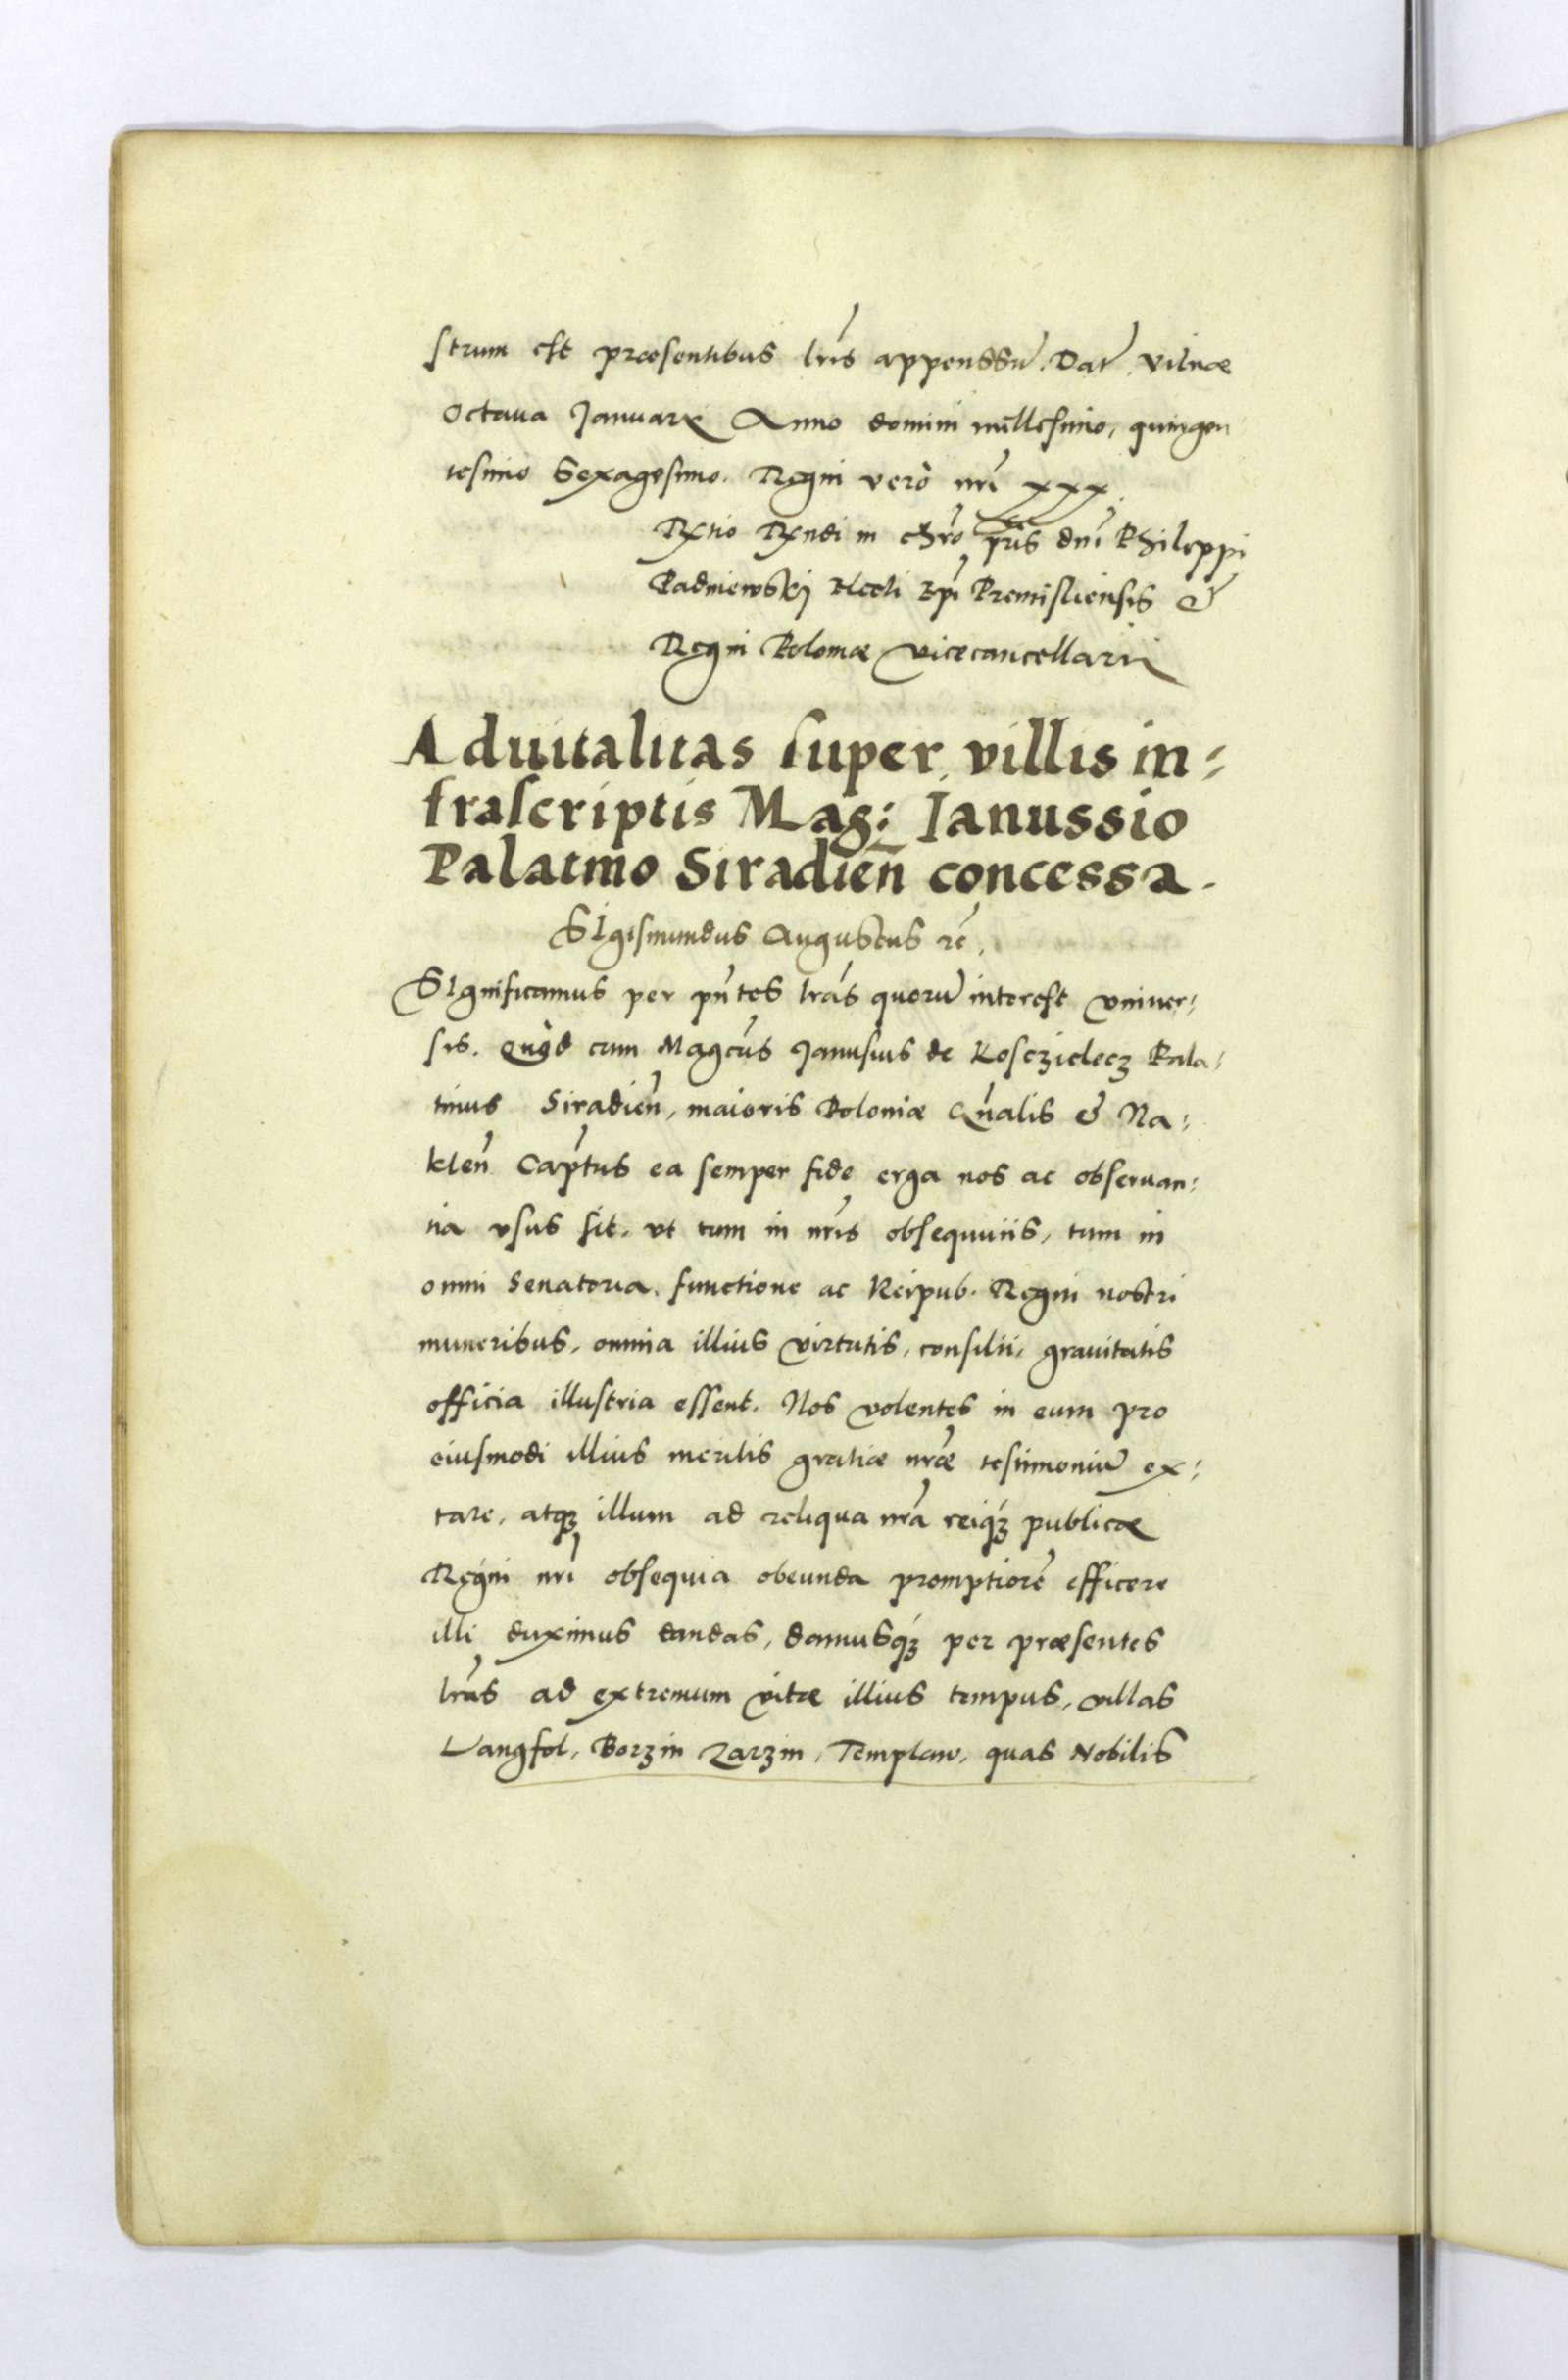 strum est præsentibus lris appenssū. Dat. Vilnæ
octaua Januarij Anno domini millesimo, quingen
tesimo Sexagesimo. Regni verò nri xxx.
Rxtio Rxndi in chro pris dni Philippi
Padniewskj Electi Epi Premisliensis &
Regni Poloniæ Vicecancellarii
Aduitalitas super villis in⸗
frascriptis Mag: Ianussio
Palatino Siradien̄ concessa.
SIgismundus Augustus rc̄.
SIgnificamus per pn̄tes lrās quorū interest vniuer⸗
sis. Quòd cum Magcus Janusius de Kosczielecz Pala⸗
tinus Siradien̄, maioris Poloniæ Gn̄alis & Na⸗
klen̄ Cap̄tus ea semper fide erga nos ac obseruan⸗
tia vsus sit. vt tum in nris obsequuiis, tum in
omni Senatoria functione ac Reipub. Regni nostri
muneribus, omnia illius virtutis, consilii, grauitatis
officia illustria essent. Nos volentes in eum pro
eiusmodi illius meritis gratiæ nræ testimoniū ex⸗
tare, atqȝ illum ad reliqua nra reiqȝ publicæ
Regni nri obsequia obeunda promptiorē efficere
illi duximus dandas, damusqȝ per præsentes
lrās ad extremum vitæ illius tempus, villas
Langfol, Borzin Zarzin, Templaw, quas Nobilis